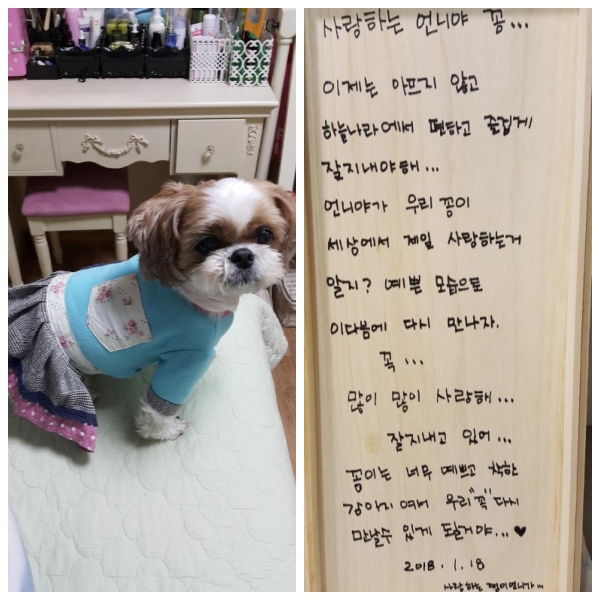 사랑하는 언니야 꽁...
이제는 아프지 않고
하늘나라에서 편하고 즐겁게
잘지내야해...
언니야가 우리 꽁이
세상에서 제일 사랑하는거
알지? 예쁜 모습으로
이다음에 다시 만나자.
꼭...
많이 많이 사랑해...
잘지내고 있어...
꽁이는 너무 예쁘고 착한
강아지 여서 우리 "꼭" 다시
만날수 있게 도힐거야...♥
2018.1.18
사랑하는 언니가...